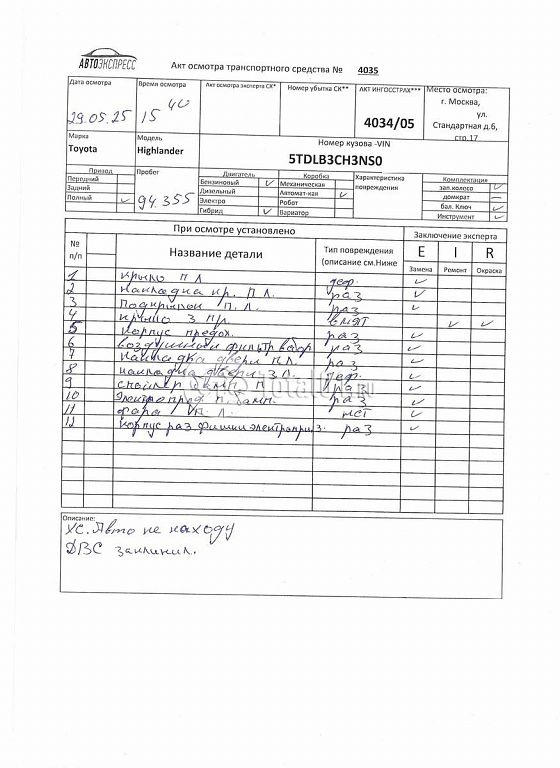 АВТОЭКСПРЕСС
Акт осмотра транспортного средства № 4035
Дата осмотра
29.05.25
Время осмотра
15 40
Акт осмотра эксперта СК*
Номер убытка СК**
АКТ ИНГОССТРАХ***
4034/05
Место осмотра:
г. Москва,
ул.
Стандартная д.6,
стр.17
Марка
Toyota
Модель
Highlander
Номер кузова -VIN
5TDLB3CH3NS0
Привод
Передний
Задний
Полный ✓
Пробег
94.355
Двигатель
Бензиновый ✓
Дизельный
Электро
Гибрид ✓
Коробка
Механическая
Автомат-кая ✓
Робот
Вариатор
Характеристика
повреждения
Комплектация
зап.колесо ✓
домкрат –
бал. Ключ ✓
Инструмент ✓
При осмотре установлено
Заключение эксперта
№ п/п
Название детали
Тип повреждения
(описание см.Ниже
E I R
Замена Ремонт Окраска
1 крыло П Л деф. ✓
2 накладка кр. П.Л. раз ✓
3 Подкрылок П.Л. раз ✓
4 крыло З П/Л вмят ✓ ✓
5 корпус предох. раз ✓
6 воздушный фильтр раз ✓
7 накладка двери П.Л. раз ✓
8 накладка двери З.Л. деф. ✓
9 спойлер бамп П раз ✓
10 Электропров п. бамп. раз ✓
11 фара П. Л. ✓
12 корпус раз. фишки электропр раз ✓
Описание:
ХС. Авто не на ходу
ДВС заклинил.